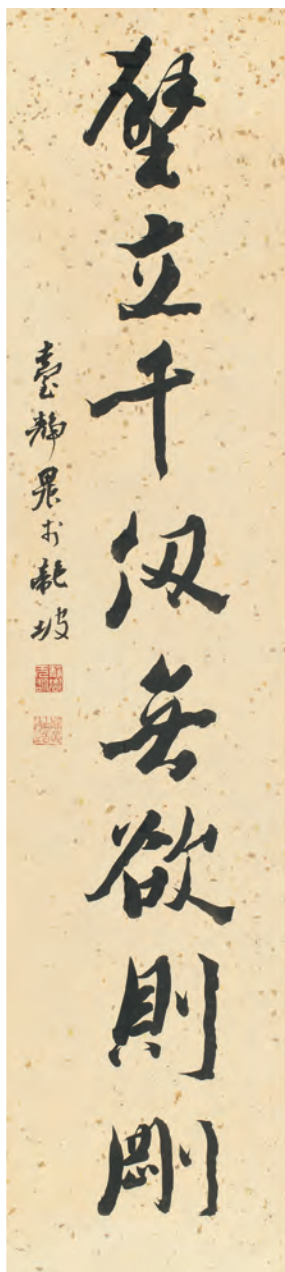 壁立千仞無欲則剛
臺靜農於龍坡